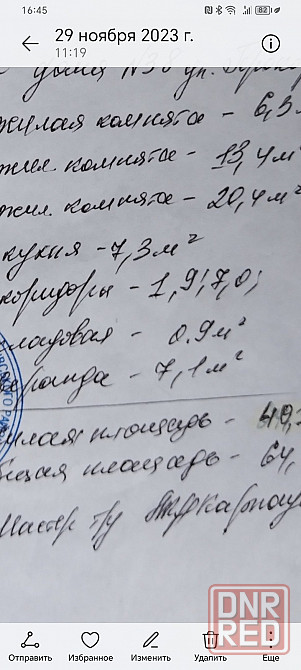 16:45
82
29 ноября 2023 г.
11:19
дома №38 ул.
жилая комната - 6,3м
жил. комната - 13,4м²
жил. комната - 20,4м²
кухня - 7,3м²
коридоры - 1,9; 7,0;
кладовая - 0.9м²
веранда - 7,1м²
жилая площадь - 40,
общая площадь - 64,
Мастер т/у
DNR
RED
Отправить Избранное Изменить Удалить Еще